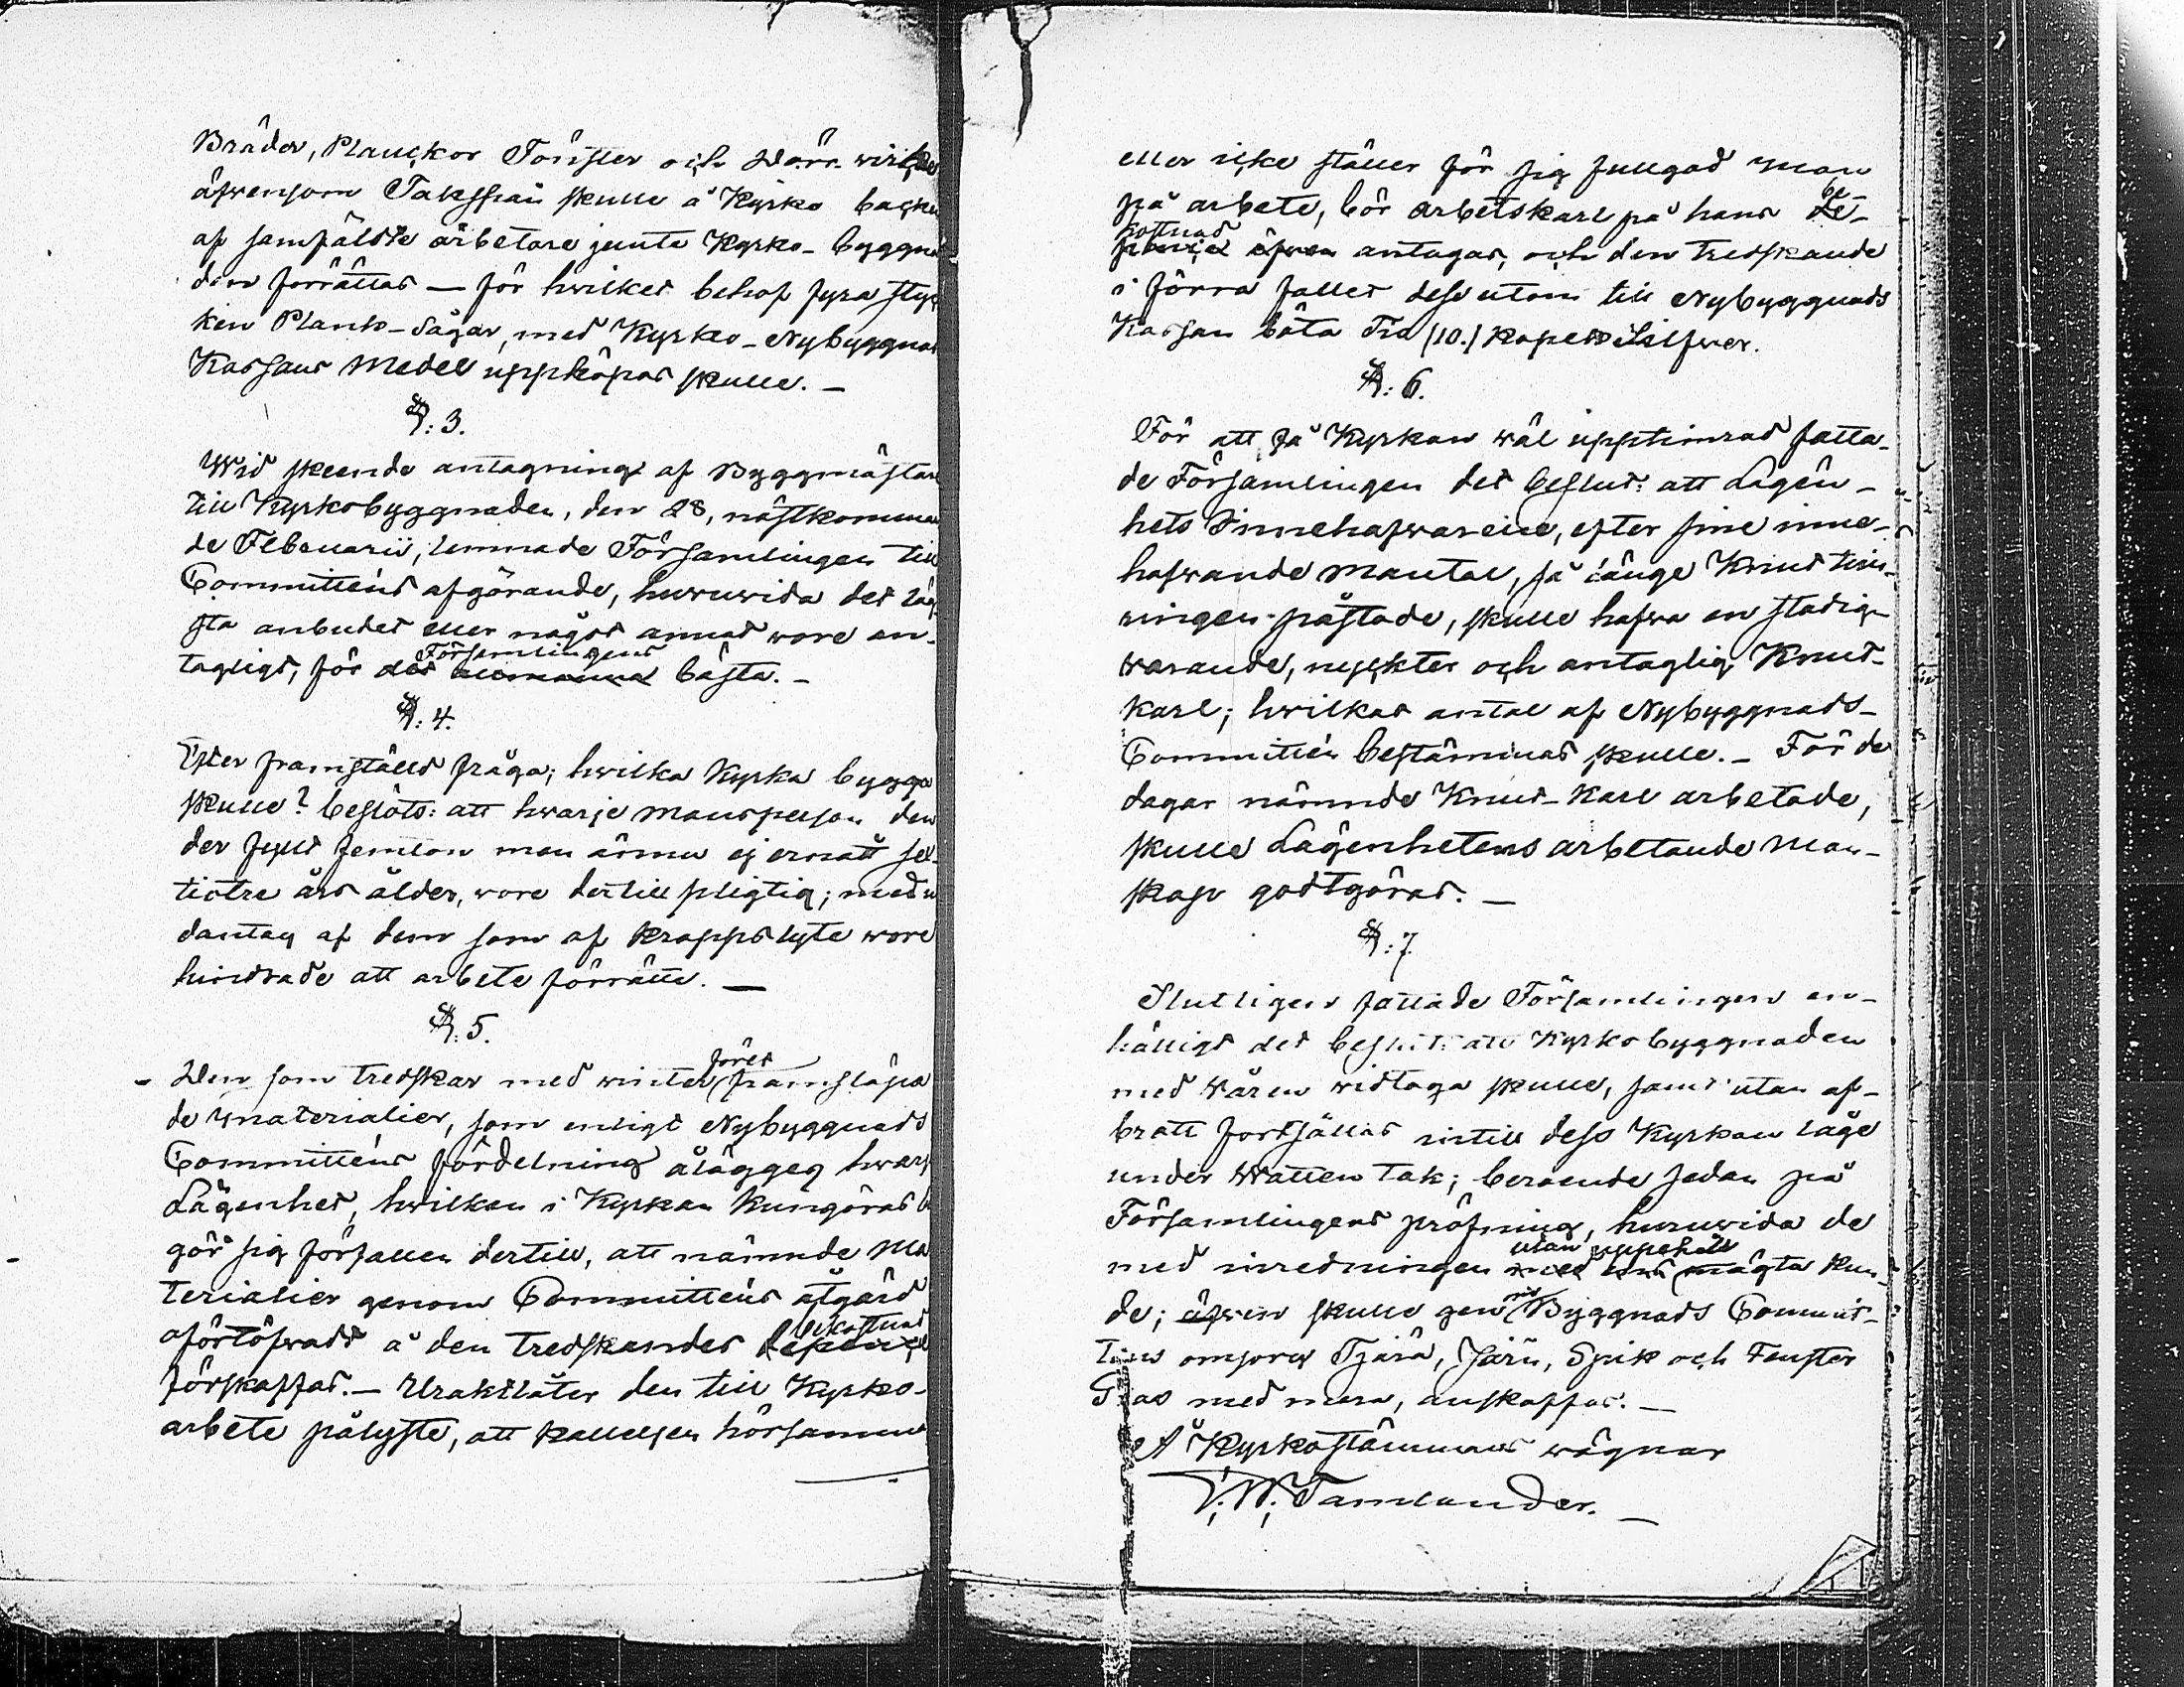 Bräder, Planckor Fönster och Dörr wirke
äfwensom Takspån skulle å Kyrko backen
af samfäldte arbetare jemte Kyrko-byggna
den förrättas — för hwilket behof fyra styc
ken Plank-Sågar, med Kyrko-Nybyggnad
Kassans Medel uppköpas skulle. —
§: 3.
Wid skeende antagning af Byggmästare
till Kyrkobyggnaden, den 28, nästkomman
de Februarii, lemnade Församlingen till
Committéns afgörande, huruwida det läg
sta anbudet eller något annat wore an-
tagligt, för det Församlingens allmänna bästa. —
§: 4.
Efter framställd fråga; hwilka Kyrka bygga
skulle? beslöts: att hwarje mansperson
der fyllt femton men ännu ej ernått sex-
tiotre års ålder, wore dertill pligtig; med un
dantag af dem som af kroppslyte wore
hindrade att arbete förrätta. —
§: 5.
Den som tredskar med winter föret framsläpa
de materialier, som enligt Nybyggnads
Committéns fördelning åläggeg hwarje
Lägenhet, hwilken i Kyrkan kungöras
gör sig förfallen dertill, att nämnde Ma
terialier genom Committéns åtgärd
oförtöfwadt å den tredskandes bekostnad
förskaffas. — Uraktlåter den till Kyrko-
arbete pålyste, att kallelsen hörsamma
eller icke ställer för sig fullgod man
på arbete, bör arbetskarl på hans be-
kostnad äfwen antagas, och den tredskande
i förra fallet dessutom till Nybyggnads
Kassan böta Tio (10.) kopek Silfwer.
§: 6.
För att få Kyrkan wäl upptimrad fatta-
de Församlingen det beslut: att Lägen-
hets Innehafwarene, efter sine inne-
hafwande mantal, så länge Knut tim-
ringen påstode, skulle hafwa en stadig-
warande, nyckter och antaglig Knut-
karl; hwilkas antal af Nybyggnads-
Committén bestämmas skulle. — För de
dagar nämnde Knut-Karl arbetade,
skulle Lägenhetens arbetande Man-
skap godtgöras. —
§: 7.
Slutligen fattade Församlingen en-
hälligt det beslut: att Kyrkobyggnaden
med Wåren widtaga skulle, samt utan af-
brott fortsättas intill dess Kyrkan låge
under Watten tak; beroende sedan på
Församlingens pröfning, huruwida de
med inredningen utan uppehåll mägta kun-
de; äfwen skulle genom Byggnads Commit-
téns omsorg Tjära, Järn, Spik och Fenster
Glas med mera, anskaffas. —
Å Kyrkostämmans wägnar
F. W. Tamlander. —